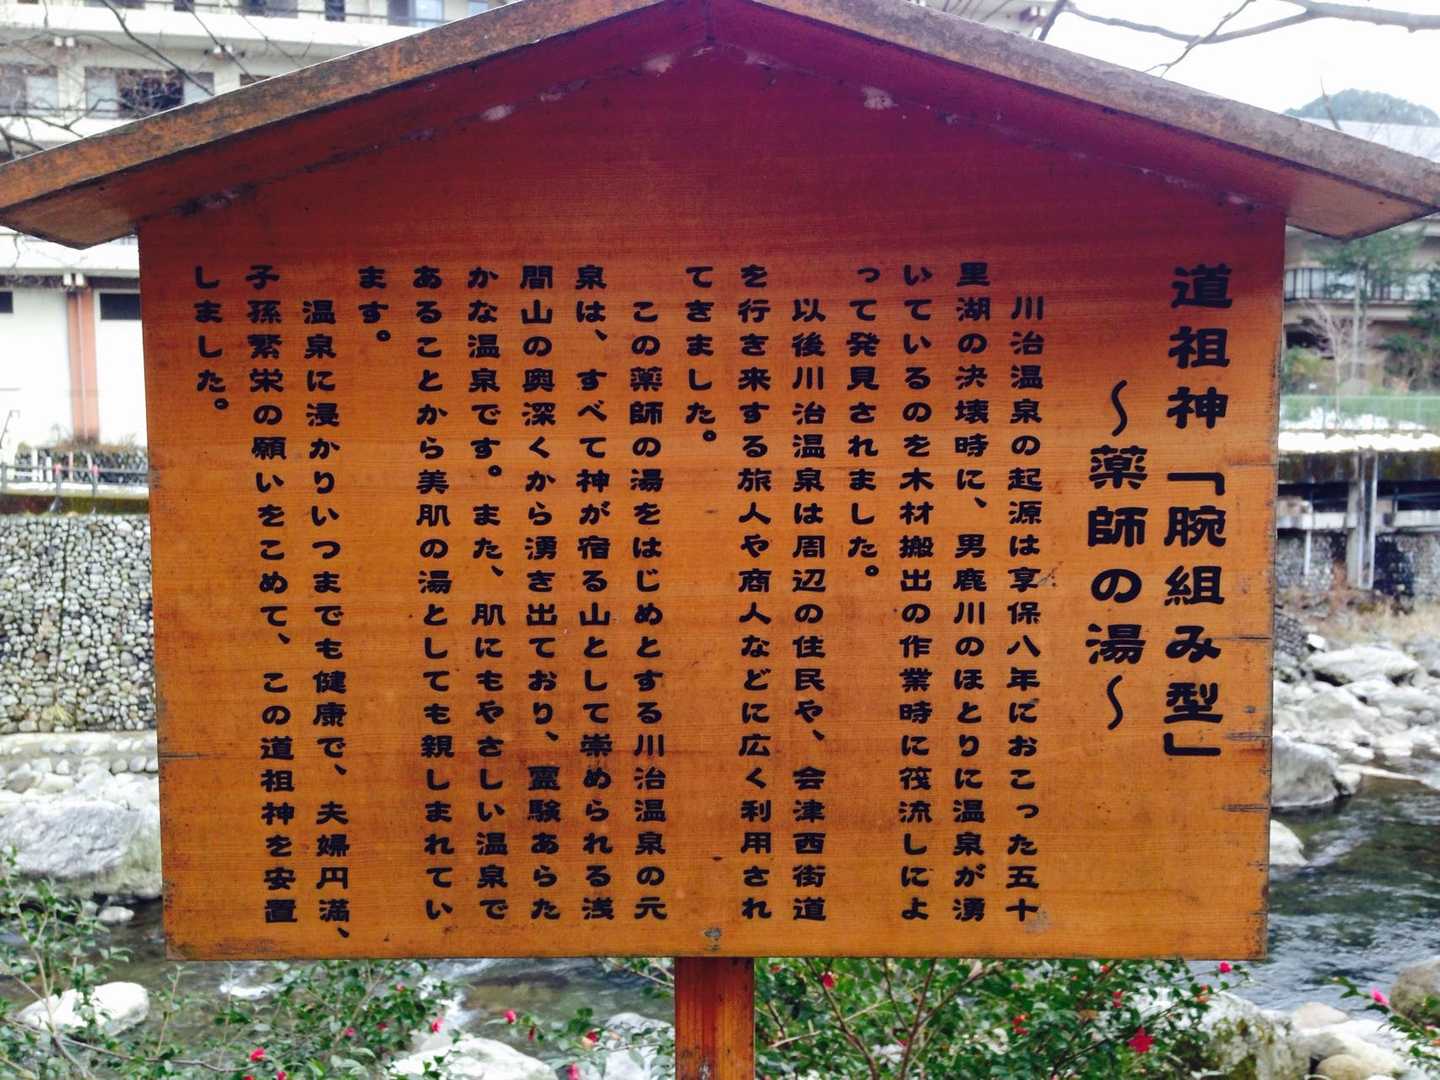 道祖神「腕組み型」
～薬師の湯～
川治温泉の起源は享保八年におこった五十
里湖の決壊時に、男鹿川のほとりに温泉が湧
いているのを木材搬出の作業時に筏流しによ
って発見されました。
以後川治温泉は周辺の住民や、会津西街道
を行き来する旅人や商人などに広く利用され
てきました。
この薬師の湯をはじめとする川治温泉の元
泉は、すべて神が宿る山として崇められる浅
間山の奥深くから湧き出ており、霊験あらた
かな温泉です。また、肌にもやさしい温泉で
あることから美肌の湯としても親しまれてい
ます。
温泉に浸かりいつまでも健康で、夫婦円満、
子孫繁栄の願いをこめて、この道祖神を安置
しました。